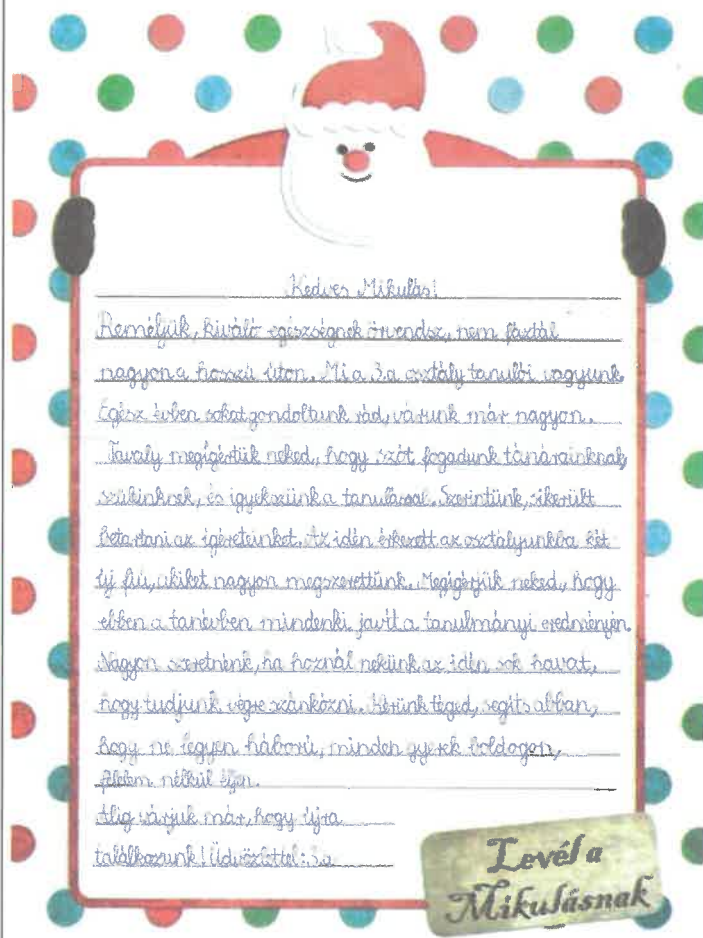 Kedves Mikulás!
Reméljük, kiváló egészségnek örvendsz, nem fáztál
nagyon a hosszú úton. Mi a 3.a osztály tanulói vagyunk.
Egész évben sokat gondoltunk rád, várunk már nagyon.
Tavaly megígértük neked, hogy szót fogadunk tanárainknak,
szüleinknek, és igyekszünk a tanulással. Szerintünk, sikerült
betartani az ígéreteinket. Az idén érkezett az osztályunkba két
új fiú, akiket nagyon megszerettünk. Megígérjük neked, hogy
ebben a tanévben mindenki javít a tanulmányi eredményén.
Nagyon szeretnénk, ha hoznál nekünk az idén sok havat,
hogy tudjunk végre szánkózni. Kérünk téged, segíts abban,
hogy ne legyen háború, minden gyerek boldogan,
félelem nélkül éljen.
Alig várjuk már, hogy újra
találkozunk! Üdvözlettel: 3.a
Levél a
Mikulásnak